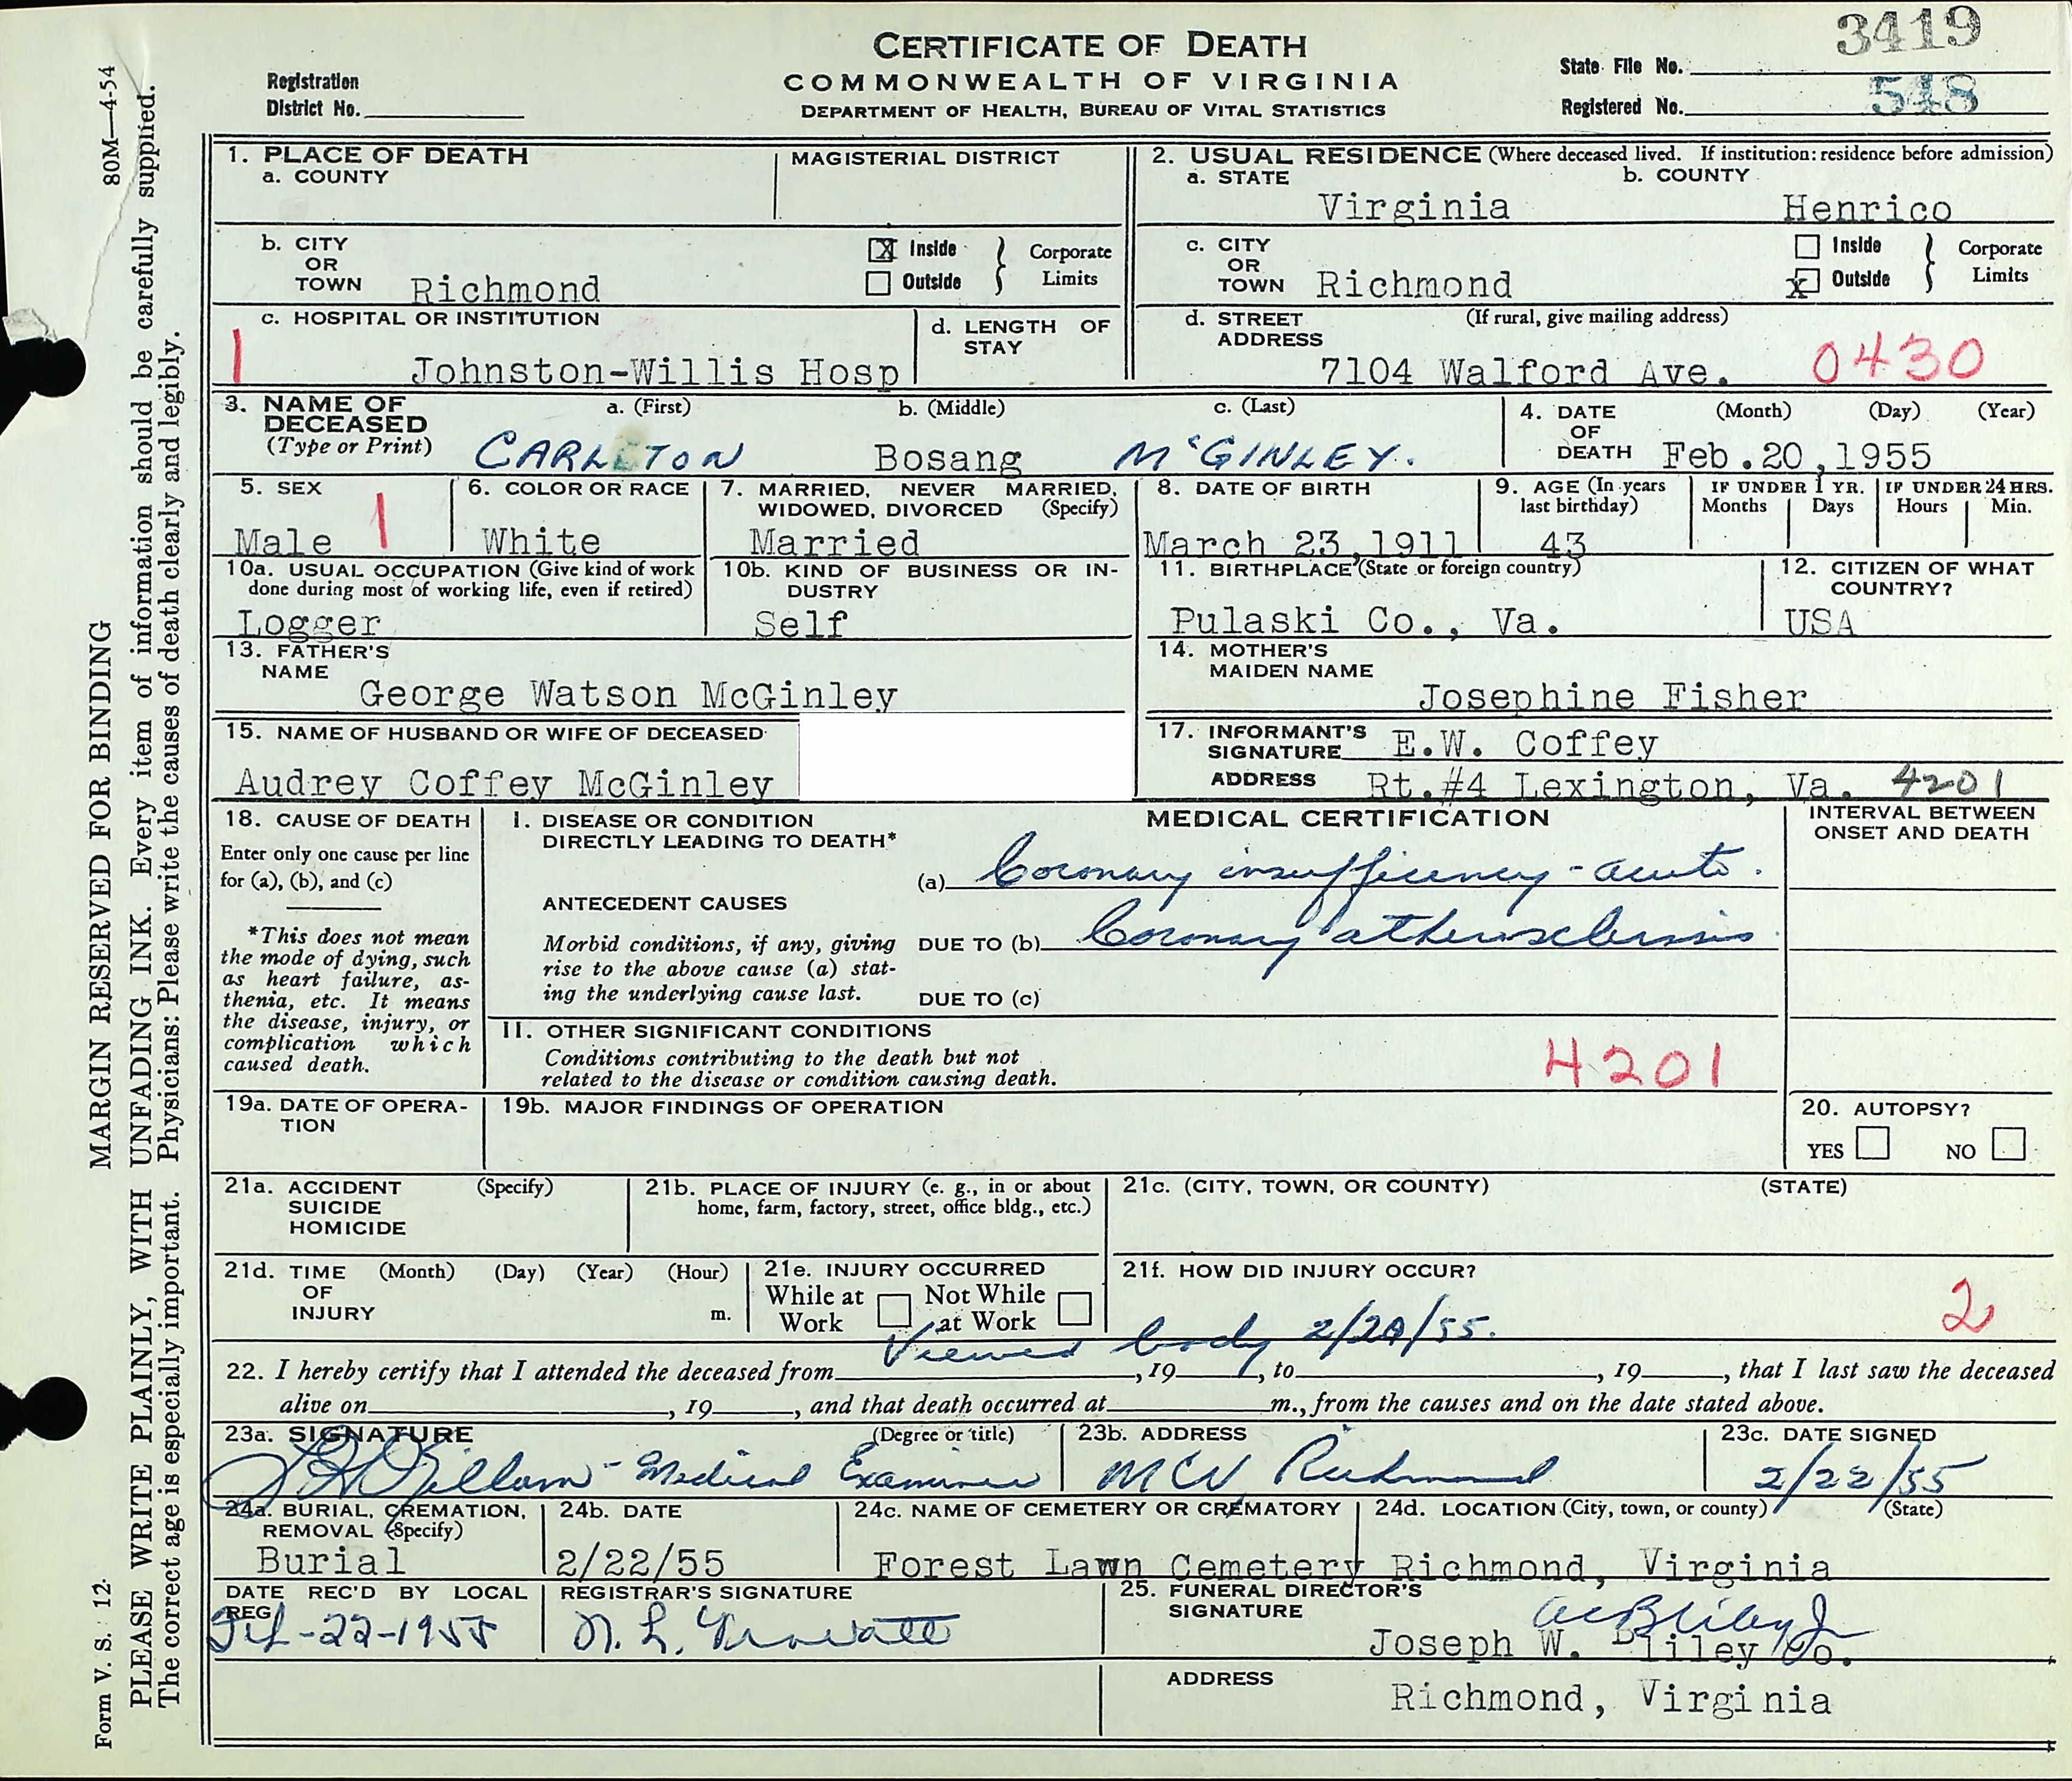 3419
CERTIFICATE OF DEATH
COMMONWEALTH OF VIRGINIA
DEPARTMENT OF HEALTH, BUREAU OF VITAL STATISTICS
Registration
District No.
State File No.
Registered No. 548
1. PLACE OF DEATH
a. COUNTY
MAGISTERIAL DISTRICT
2. USUAL RESIDENCE (Where deceased lived. If institution: residence before admission)
a. STATE b. COUNTY
Virginia Henrico
b. CITY
OR
TOWN Richmond
X Inside
Outside
Corporate
Limits
c. CITY
OR
TOWN Richmond
Inside
X Outside
Corporate
Limits
c. HOSPITAL OR INSTITUTION
1 Johnston-Willis Hosp
d. LENGTH OF
STAY
d. STREET (If rural, give mailing address)
ADDRESS
7104 Walford Ave. 0430
3. NAME OF
DECEASED
(Type or Print)
a. (First) b. (Middle) c. (Last)
CARLETON Bosang McGINLEY.
4. DATE (Month) (Day) (Year)
OF
DEATH Feb.20,1955
5. SEX
Male 1
6. COLOR OR RACE
White
7. MARRIED, NEVER MARRIED,
WIDOWED, DIVORCED (Specify)
Married
8. DATE OF BIRTH
March 23,1911
9. AGE (In years
last birthday)
43
IF UNDER 1 YR.
Months Days
IF UNDER 24 HRS.
Hours Min.
10a. USUAL OCCUPATION (Give kind of work
done during most of working life, even if retired)
Logger
10b. KIND OF BUSINESS OR IN-
DUSTRY
Self
11. BIRTHPLACE (State or foreign country)
Pulaski Co., Va.
12. CITIZEN OF WHAT
COUNTRY?
USA
13. FATHER'S
NAME
George Watson McGinley
14. MOTHER'S
MAIDEN NAME
Josephine Fisher
15. NAME OF HUSBAND OR WIFE OF DECEASED
Audrey Coffey McGinley
17. INFORMANT'S
SIGNATURE E.W. Coffey
ADDRESS Rt.#4 Lexington, Va. 4201
18. CAUSE OF DEATH
Enter only one cause per line
for (a), (b), and (c)
*This does not mean
the mode of dying, such
as heart failure, as-
thenia, etc. It means
the disease, injury, or
complication which
caused death.
MEDICAL CERTIFICATION
INTERVAL BETWEEN
ONSET AND DEATH
I. DISEASE OR CONDITION
DIRECTLY LEADING TO DEATH*
(a) Coronary insufficiency - acute.
ANTECEDENT CAUSES
Morbid conditions, if any, giving
rise to the above cause (a) stat-
ing the underlying cause last.
DUE TO (b) Coronary atherosclerosis
DUE TO (c)
II. OTHER SIGNIFICANT CONDITIONS
Conditions contributing to the death but not
related to the disease or condition causing death.
4201
19a. DATE OF OPERA-
TION
19b. MAJOR FINDINGS OF OPERATION
20. AUTOPSY?
YES NO
21a. ACCIDENT (Specify)
SUICIDE
HOMICIDE
21b. PLACE OF INJURY (e. g., in or about
home, farm, factory, street, office bldg., etc.)
21c. (CITY, TOWN, OR COUNTY) (STATE)
21d. TIME (Month) (Day) (Year) (Hour)
OF
INJURY m.
21e. INJURY OCCURRED
While at Not While
Work at Work
21f. HOW DID INJURY OCCUR?
2
Viewed body 2/20/55.
22. I hereby certify that I attended the deceased from , 19 , to , 19 , that I last saw the deceased
alive on , 19 , and that death occurred at m., from the causes and on the date stated above.
23a. SIGNATURE (Degree or title)
- Medical Examiner
23b. ADDRESS
MCV, Richmond
23c. DATE SIGNED
2/22/55
24a. BURIAL, CREMATION,
REMOVAL (Specify)
Burial
24b. DATE
2/22/55
24c. NAME OF CEMETERY OR CREMATORY
Forest Lawn Cemetery
24d. LOCATION (City, town, or county) (State)
Richmond, Virginia
DATE REC'D BY LOCAL
REG.
Feb-22-1955
REGISTRAR'S SIGNATURE
25. FUNERAL DIRECTOR'S
SIGNATURE
AC Bliley Jr
Joseph W. Bliley Co.
ADDRESS
Richmond, Virginia
80M—4-54
MARGIN RESERVED FOR BINDING
PLEASE WRITE PLAINLY, WITH UNFADING INK. Every item of information should be carefully supplied.
The correct age is especially important. Physicians: Please write the causes of death clearly and legibly.
Form V. S. 12.